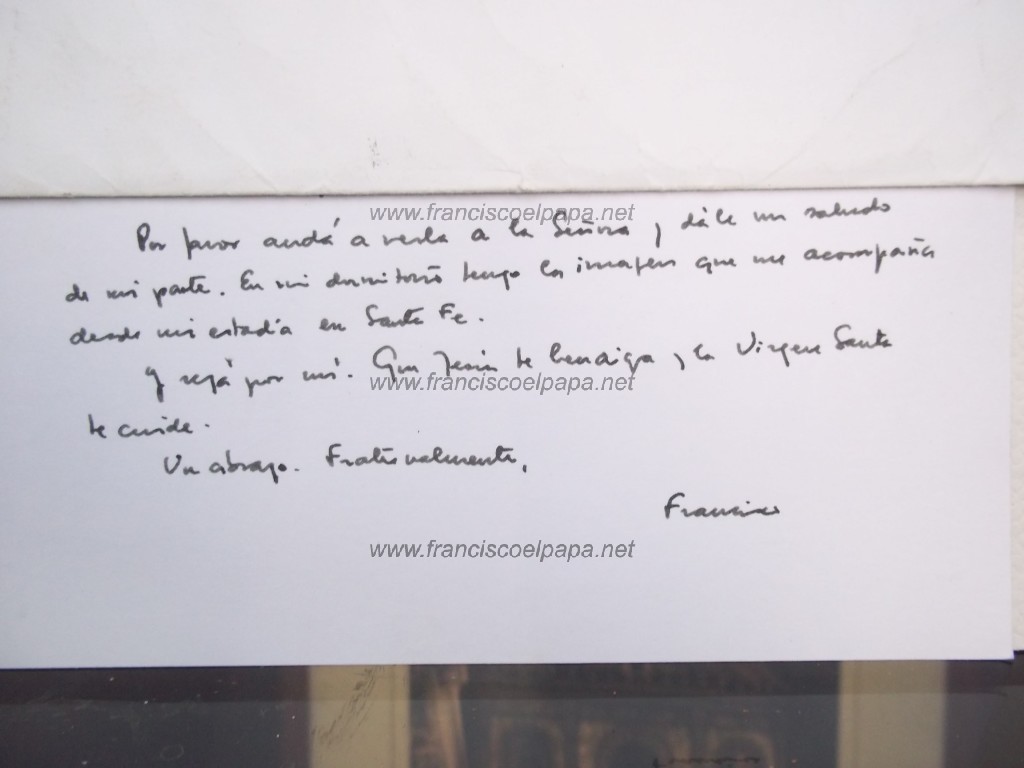 www.franciscoelpapa.net
Por favor andá a verla a la Señora y dále un saludo
de mi parte. En mi dormitorio tengo la imagen que me acompaña
desde mi estadía en Santa Fe.
Y rezá por mí. Que Jesús te bendiga y la Virgen Santa
www.franciscoelpapa.net
te cuide.
Un abrazo. Fraternalmente,
Francisco
www.franciscoelpapa.net